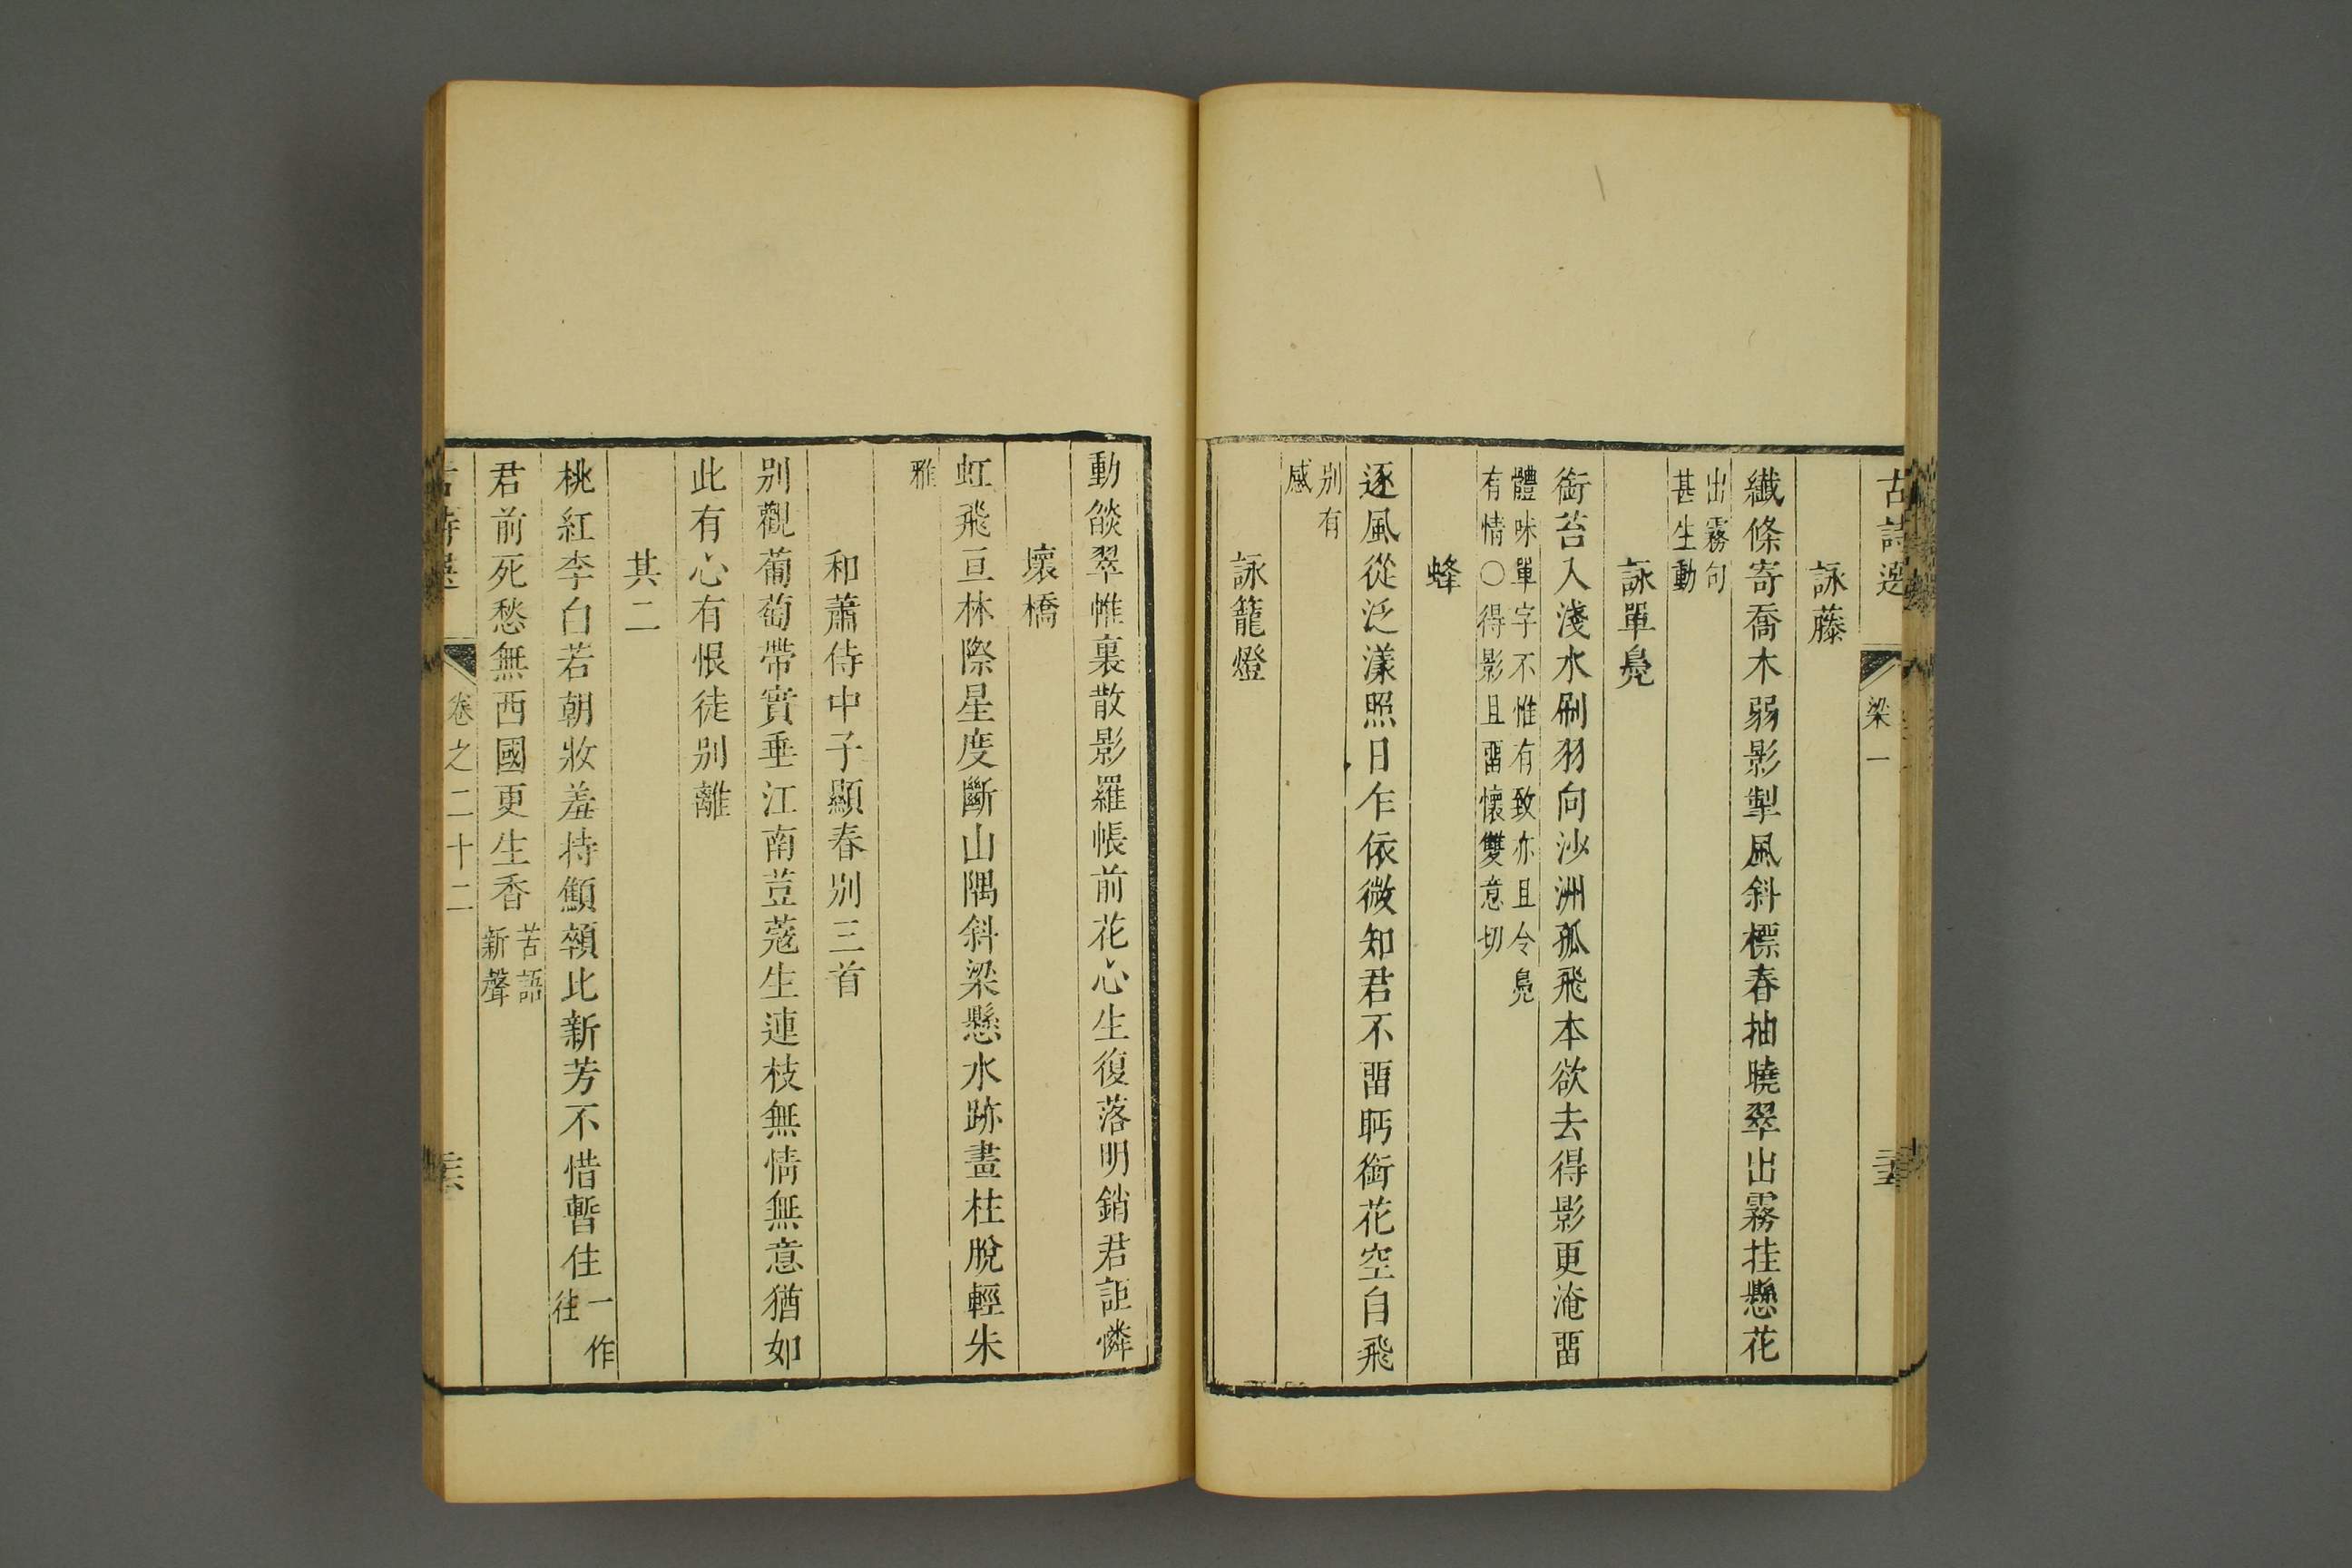 古詩選 梁一 三五
詠藤
纖條寄喬木弱影掣風斜標春抽曉翠出霧挂懸花
出霧句
甚生動
詠單鳧
銜苔入淺水刷羽向沙洲孤飛本欲去得影更淹畱
體味單字不惟有致亦且令鳧
有情○得影且畱懷雙意切
蜂
逐風從泛漾照日乍依微知君不畱眄銜花空自飛
別有
感
詠籠燈
動燄翠帷裏散影羅帳前花心生復落明銷君詎憐
壞橋
虹飛亘林際星度斷山隅斜梁懸水跡畫柱脫輕朱
雅
和蕭侍中子顯春別三首
別觀葡萄帶實垂江南荳蔻生連枝無情無意猶如
此有心有恨徒別離
其二
桃紅李白若朝妝羞持顦顇比新芳不惜暫住一作
往
君前死愁無西國更生香苦語
新聲
卷之二十二